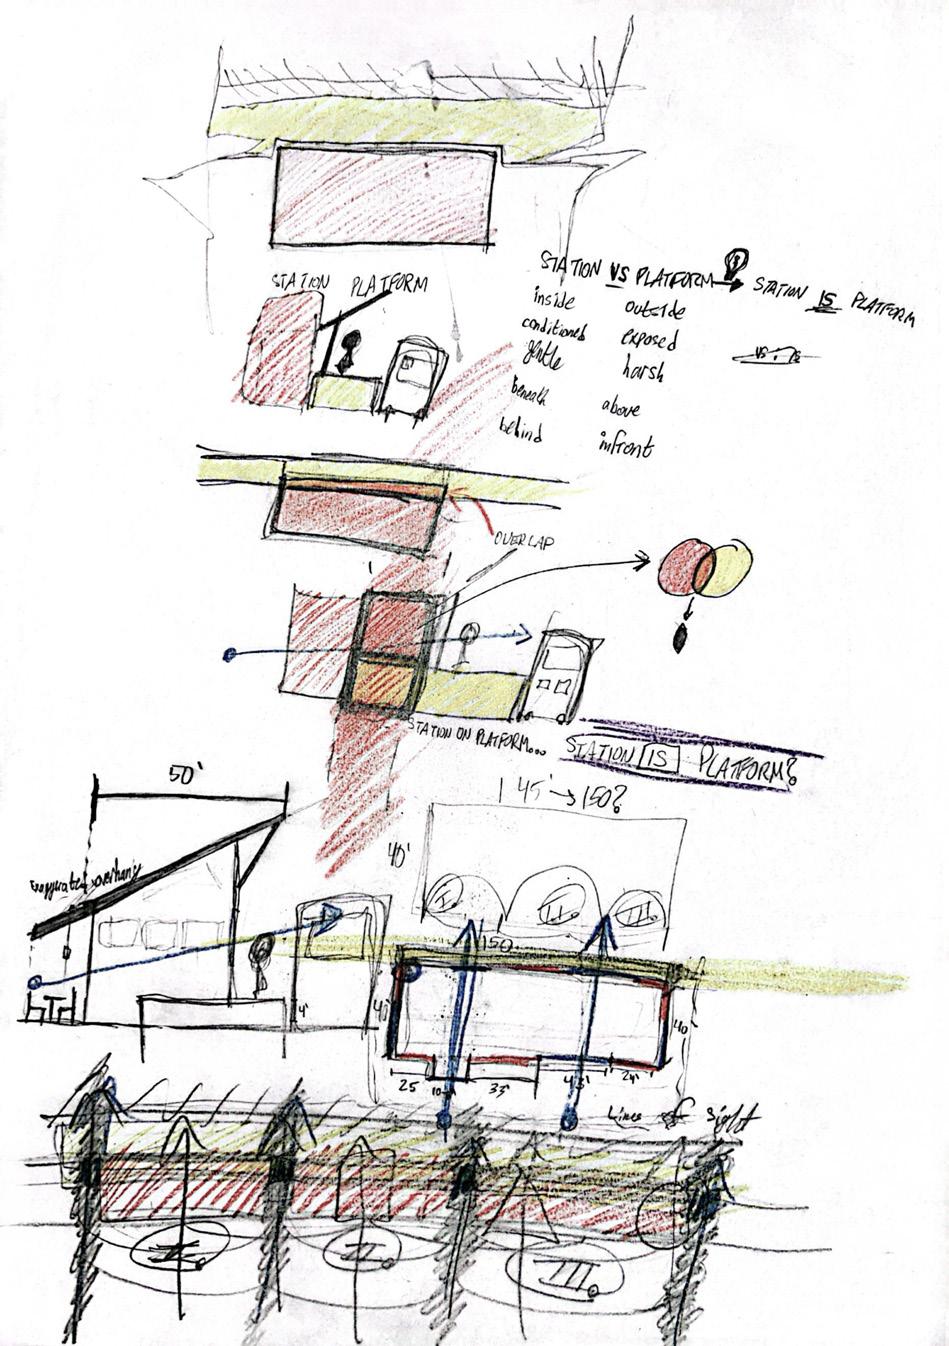 STATION VS PLATFORM → STATION IS PLATFORM
inside outside
conditioned exposed
gentle harsh
beneath above
behind infront
STATION PLATFORM
OVERLAP
STATION ON PLATFORM...
STATION IS PLATFORM?
50'
145' → 150?
40'
Exaggerated overhang
I. II. III.
150
4'
40'
40
25 10 33' 43' 24'
Lines of Sight
I. II. III.